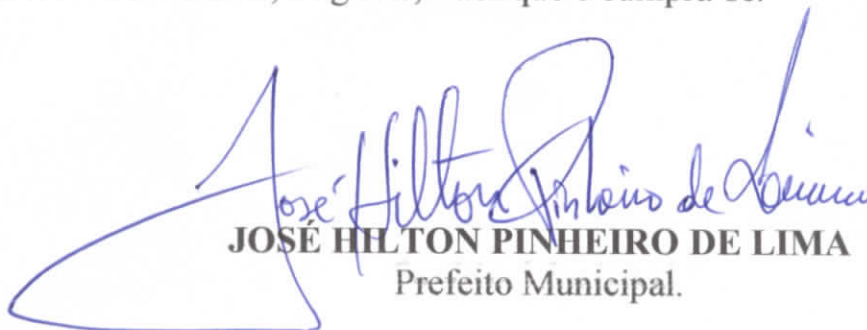 cumpra-se.
José Hilton Pinheiro de Lima
JOSÉ HILTON PINHEIRO DE LIMA
Prefeito Municipal.